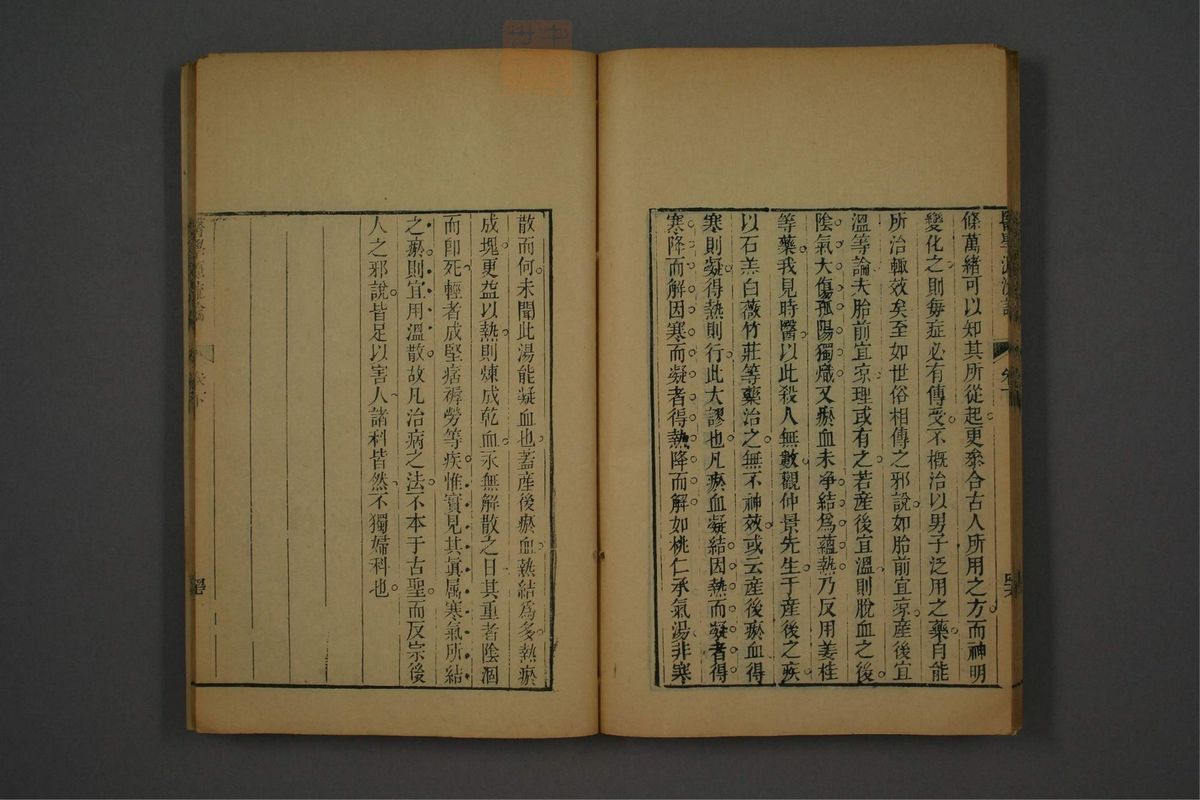 條萬緒可以知其所從起更叅合古人所用之方而神明
變化之則毎症必有傳受不概治以男子泛用之藥自能
所治輙效矣至如世俗相傳之邪說如胎前宜凉産後宜
溫等論夫胎前宜凉理或有之若産後宜溫則脫血之後
陰氣大傷孤陽獨熾又瘀血未净結爲蘊熱乃反用姜桂
等藥我見時醫以此殺人無數觀仲景先生于産後之疾
以石羔白薇竹茹等藥治之無不神效或云産後瘀血得
寒則凝得熱則行此大謬也凡瘀血凝結因熱而凝者得
寒降而解因寒而凝者得熱降而解如桃仁承氣湯非寒
散而何未聞此湯能凝血也葢産後瘀血熱結爲多熱瘀
成塊更益以熱則煉成乾血永無解散之日其重者陰涸
而卽死輕者成堅痞褥勞等疾惟實見其眞属寒氣所結
之瘀則宜用溫散故凡治病之法不本于古聖而反宗後
人之邪說皆足以害人諸科皆然不獨婦科也
醫學源流論
卷下